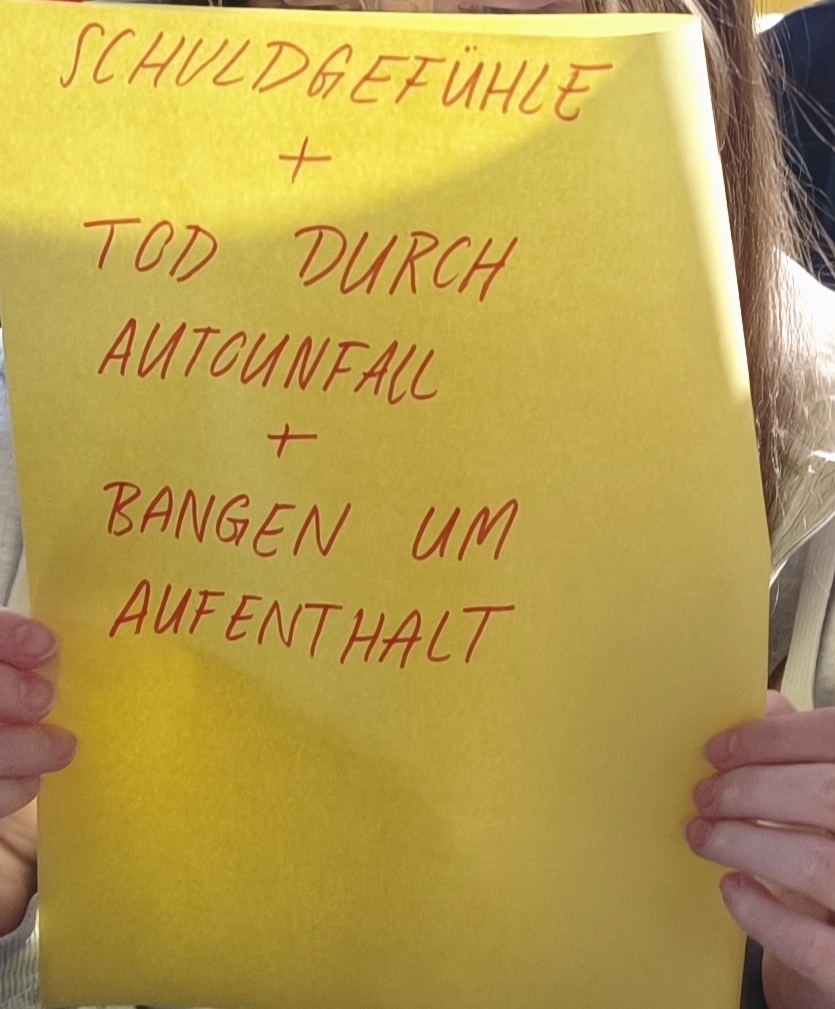 SCHULDGEFÜHLE
+
TOD DURCH
AUTOUNFALL
+
BANGEN UM
AUFENTHALT